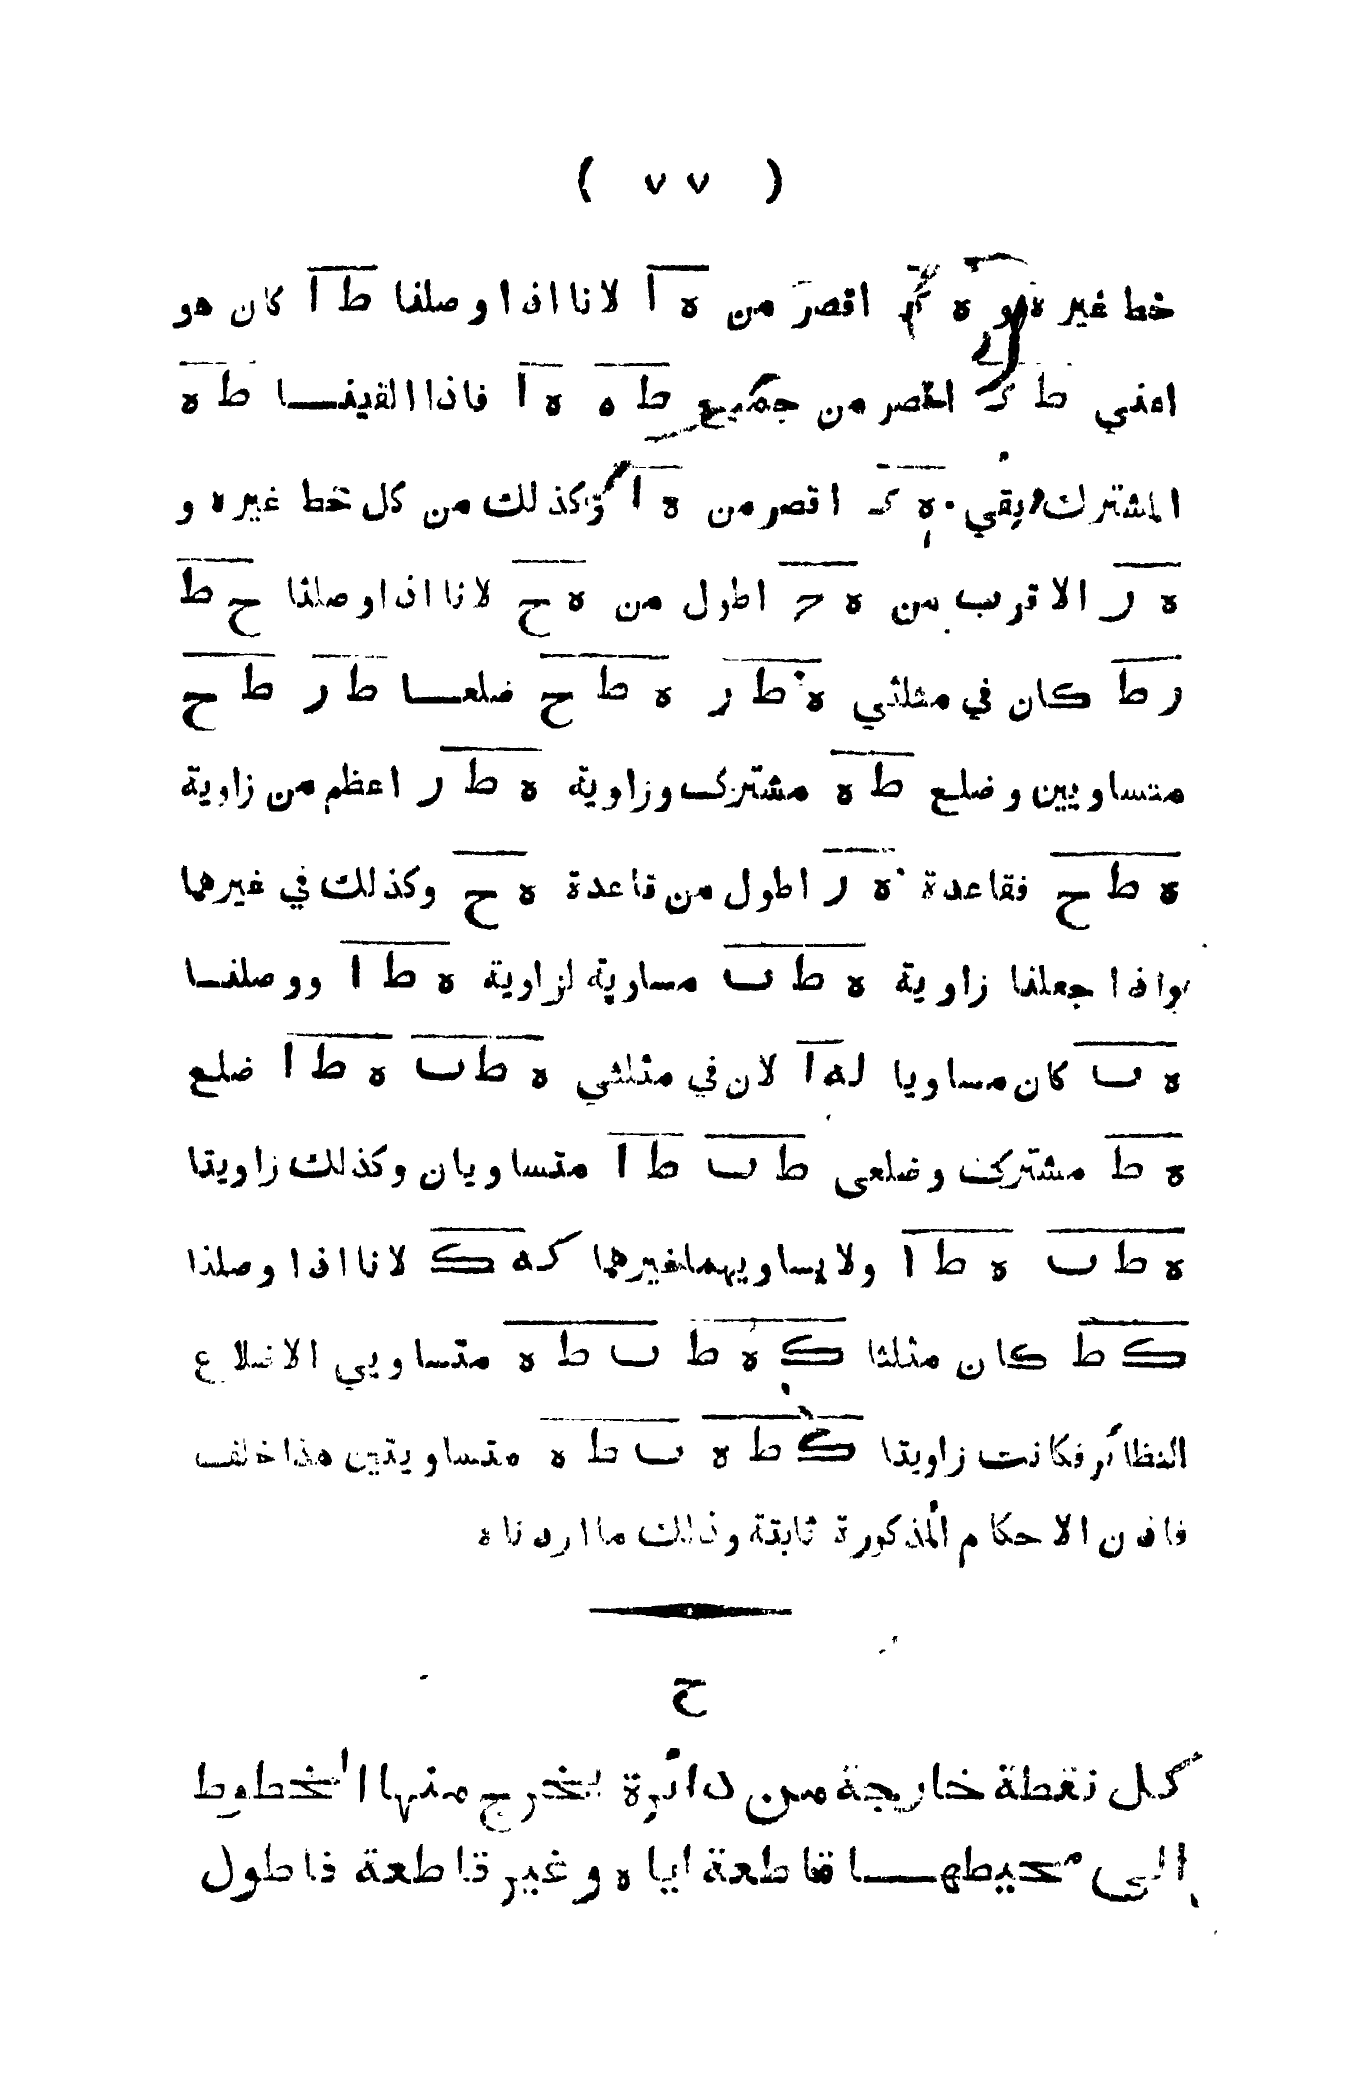 ( ٧٧ )
خط غيره و ه ر اقصر من ه ا لانا اذا وصلنا ط ا كان هو
اعني ط ر اقصر من جميع ط ه ه ا فاذا القينا ط ه
المشترك بقي ه ر اقصر من ه ا وكذلك من كل خط غيره و
ه ر الاقرب من ه ح اطول من ه ح لانا اذا وصلنا ح ط
ر ط كان في مثلثي ه ط ر ه ط ح ضلعا ط ر ط ح
متساويين وضلع ط ه مشترك وزاوية ه ط ر اعظم من زاوية
ه ط ح فقاعدة ه ر اطول من قاعدة ه ح وكذلك في غيرهما
واذا جعلنا زاوية ه ط ب مساوية لزاوية ه ط ا ووصلنا
ه ب كان مساويا له ا لان في مثلثي ه ط ب ه ط ا ضلع
ه ط مشترك وضلعي ط ب ط ا متساويان وكذلك زاويتا
ه ط ب ه ط ا ولا يساويهما غيرهما كه ك لانا اذا وصلنا
ك ط كان مثلثا ك ه ط ب ط ه متساويي الاضلاع
النظائر فكانت زاويتا ك ط ه ب ط ه متساويتين هذا خلف
فاذن الاحكام المذكورة ثابتة وذلك ما اردناه
ح
كل نقطة خارجة من دائرة يخرج منها الخطوط
الى محيطها قاطعة اياه وغير قاطعة فاطول